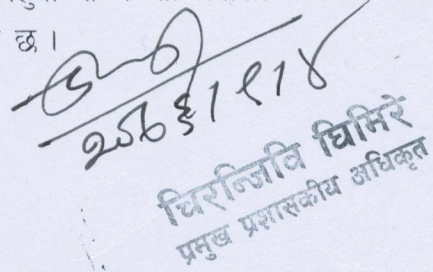 छ ।
२०७६।९।४
चिरन्जिवि घिमिरे
प्रमुख प्रशासकीय अधिकृत